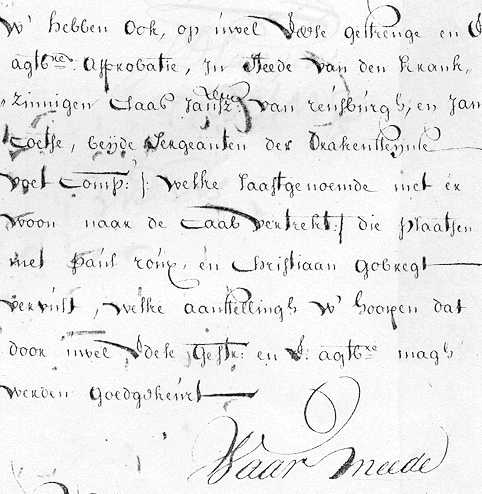 W' hebben Ook, op uwel Edele gestrenge en E
agtb:re Approbatie, In Steede van den Krank„
„zinnigen Claas Jansz van rensburgh, en Jan
Coetse, beyde Sergeanten der Drakensteynse
voet Comp: /: welke laastgenoemde met er
woon naar de Caab vertrekt :/ die plaatsen
met Paul roux, en Christiaan Gobregt
vervult, welke aanstellingh W' hoopen dat
door uwel Edele Gestr: en E: agtb:re magh
werden Goedgekeurt
Waar meede